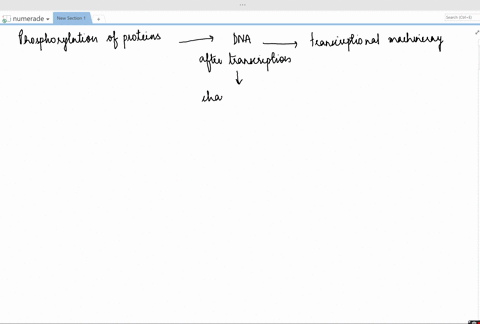 numerade
New Section 1
Search (Ctrl+E)
Phosphorylation of proteins → DNA → transcriptional machinery
after transcription
↓
cha